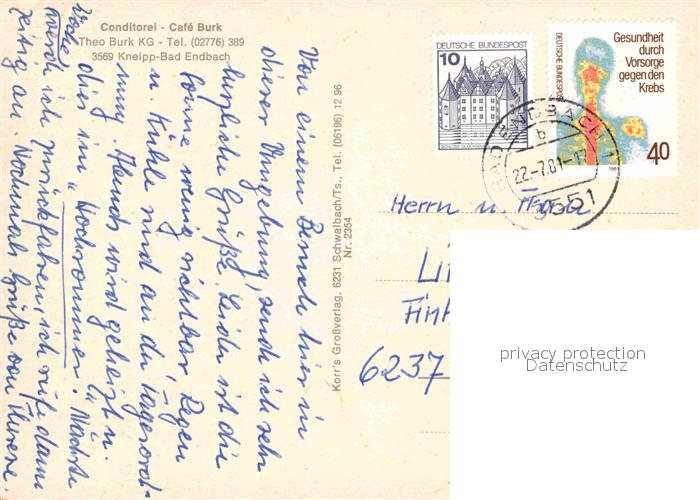 Conditorei - Café Burk
Theo Burk KG - Tel. (02776) 389
3569 Kneipp-Bad Endbach
Von einem Besuch hier in
dieser Umgebung, sende ich sehr
herzliche Grüße. Leider ist die
Sonne wenig sichtbar, Regen
u. Kühle sind an der Tagesord-
nung. Abends wird geheizt u.
dies im "Hochsommer". Nächste
Woche werde ich zurückfahren, ich rufe dann
zeitig an. Nochmals Grüße von
Korr's Großverlag, 6231 Schwalbach/Ts., Tel. (06196) 12 96
Nr. 2354
DEUTSCHE BUNDESPOST
10
DEUTSCHE BUNDESPOST
Gesundheit
durch
Vorsorge
gegen den
Krebs
40
1981
BAD ENDBACH 1
b
22.-7.81-17
3551
Herrn u. Frau
6237
privacy protection
Datenschutz